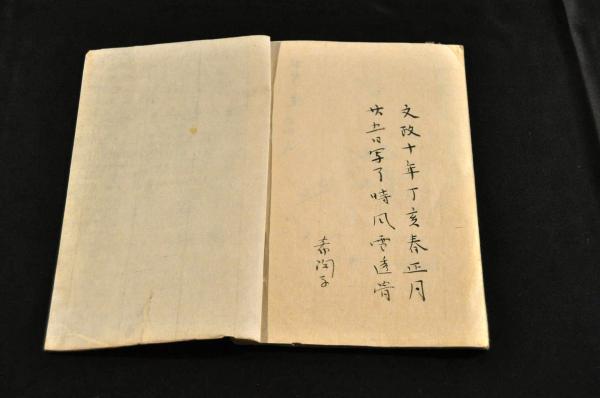 文政十年丁亥春正月
廿五日写了時風雪透骨